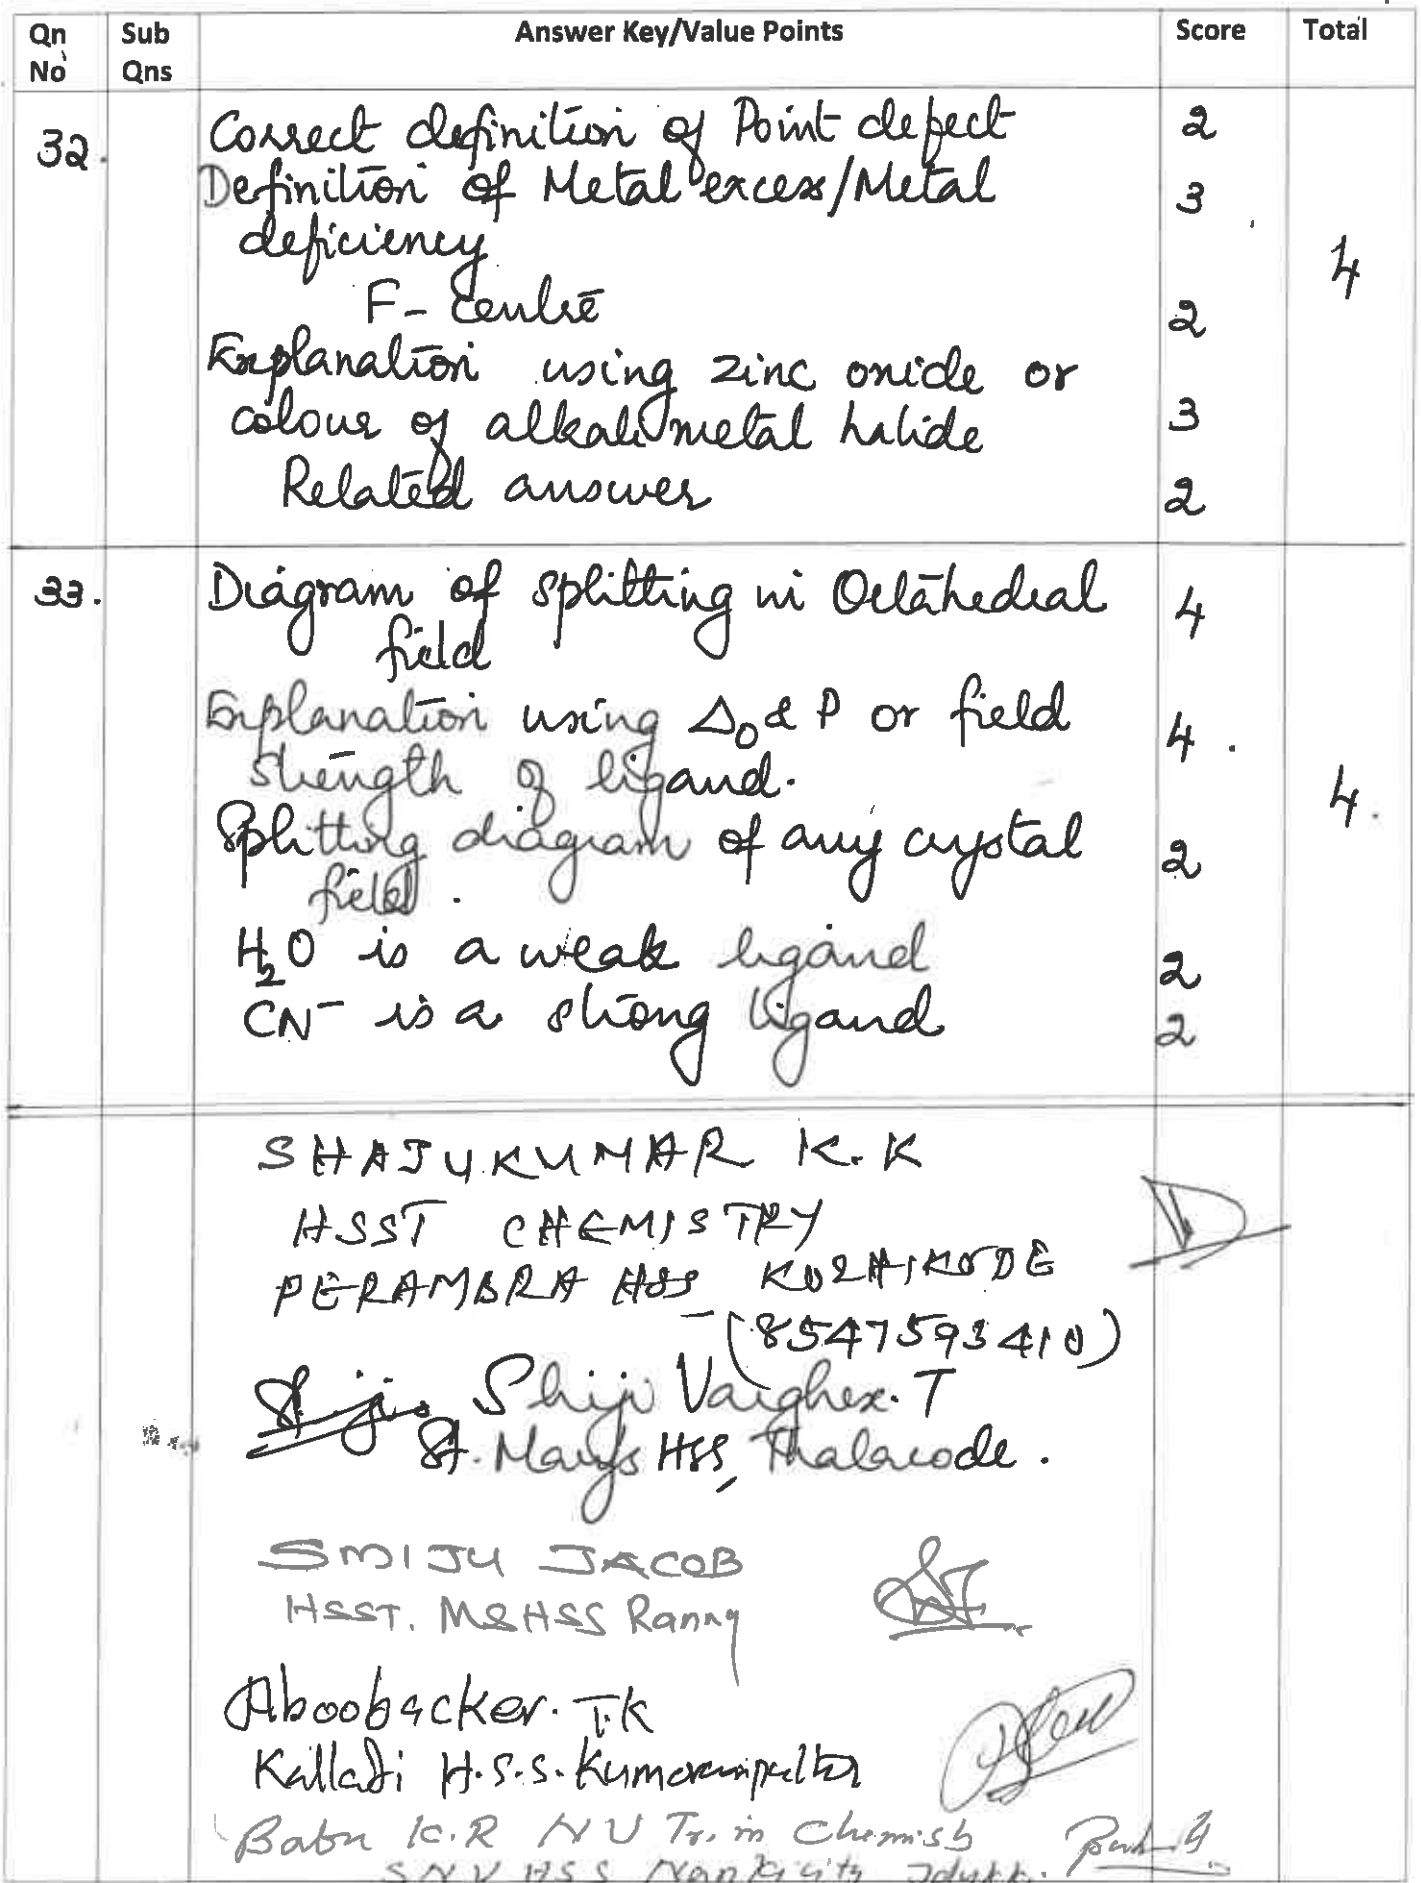 Qn No Sub Qns Answer Key/Value Points Score Total
32. Correct definition of Point defect 2
Definition of Metal excess/Metal 3
deficiency
4
F- centre 2
Explanation using zinc oxide or
colour of alkali metal halide 3
Related answer 2
33. Diagram of splitting in Octahedral 4
field
Explanation using Δ₀ & P or field 4.
strength of ligand.
4.
Splitting diagram of any crystal 2
field.
H₂O is a weak ligand 2
CN⁻ is a strong ligand 2
SHAJUKUMAR K.K
HSST CHEMISTRY
PERAMBRA HSS KOZHIKODE
(8547593410)
Shiji Varghex. T
St. Mary's HSS, Thalacode.
SMIJU JACOB
HSST. MSHSS Ranny
Aboobacker. T.K
Kalladi H.S.S.
Babu K.R NV Tr. in
SNV HSS